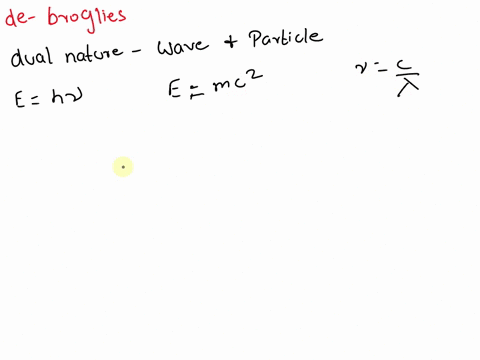 de- broglies
dual nature - wave + Particle
E = hν E = mc² ν = c/λ